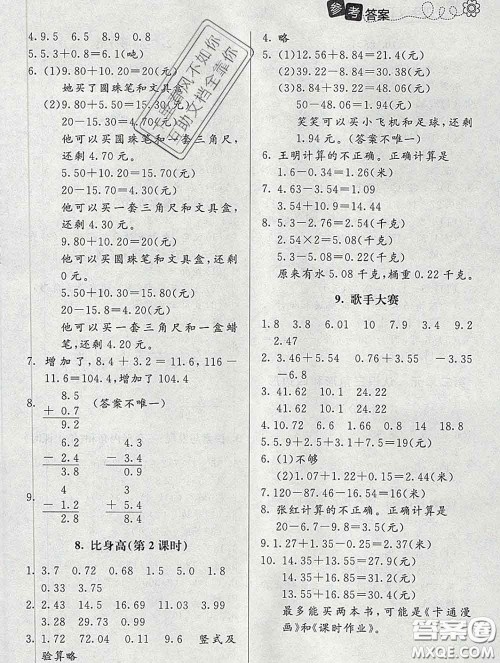 参考答案
4. 9.5　6.5　8.9　0.8
5. 5.3+0.5+0.8=6.6(吨)
6. (1)9.80+10.20=20(元)
她买了圆珠笔和文具盒
(2)9.80+5.50=15.30(元)
20-15.30=4.70(元)
他可以买圆珠笔和一套三角尺,
还剩4.70元。
5.50+10.20=15.70(元)
20-15.70=4.30(元)
他可以买一套三角尺和文具盒,
还剩4.30元。
9.80+10.20=20(元)
他可以买圆珠笔和文具盒,还剩
0元。
5.50+10.30=15.80(元)
20-15.80=4.20(元)
他可以买一套三角尺和一盒蜡
笔,还剩4.20元。
7. 增加了,8.4+3.2=11.6,116-
11.6=104.4,增加了104.4
8. 8.5　(答案不唯一)
+ 0.7
9.2
6.2　4.3
- 2.4　- 3.4
3.8　0.9
9. 4　3
- 1.2　+ 5.4
2.8　8.4
8. 比身高(第2课时)
1. 3.7　0.72　0.68　1.5　5.0　1.8
0.33　3.75
2. 2.43　14.5　16.46　2.19　4.36
15.45
3. 1.72　72.04　0.11　9.16　竖式及
验算略
4. 略
5. (1)12.56+8.84=21.4(元)
(2)8.84+30.38=39.22(元)
(3)39.22-8.84=30.38(元)
(4)39.22+8.84=48.06(元)
50-48.06=1.94(元)
笑笑可以买小飞机和足球,还剩
1.94元。(答案不唯一)
6. 王明计算的不正确。正确计算是
1.6-0.34=1.26(米)
7. 4.63-3.54=1.09
3.54+10.9=14.44
8. 5.3-2.76=2.54(千克)
2.54×2=5.08(千克)
5.3-5.08=0.22(千克)
原来有水5.08千克,桶重0.22千克。
9. 歌手大赛
1. 1.8　3.8　6.01　10　7.9　3.4　9.2
2.2
2. 3.46+5.54　0.06+0.94　-3.35
-6.8
3. 41.62　10.1　24.22
41.62　10.1　24.22
4. 10.72　8.6　10.3　6.6　14　8.8
5. 5.5+2.9+3.1+7.5=19(元)
6. (1)不够
(2)1.07+1.22+0.13=2.42(米)
7. 120-85-1.5=33.5(米)
8. 张红计算的不正确。正确计算是
20-(5.5+7)=7.5(元)
9. 1.27+1.36+0.17=2.8(米)
10. 35.4+18.6=54(元)
35.4+19.5=54.9(元)
18.6+19.5=38.1(元)
最多能买两本书,可能是《卡通漫
画》和《课时作业》。
春风不如你
互助文档全靠你
答案圈
MXQE.COM